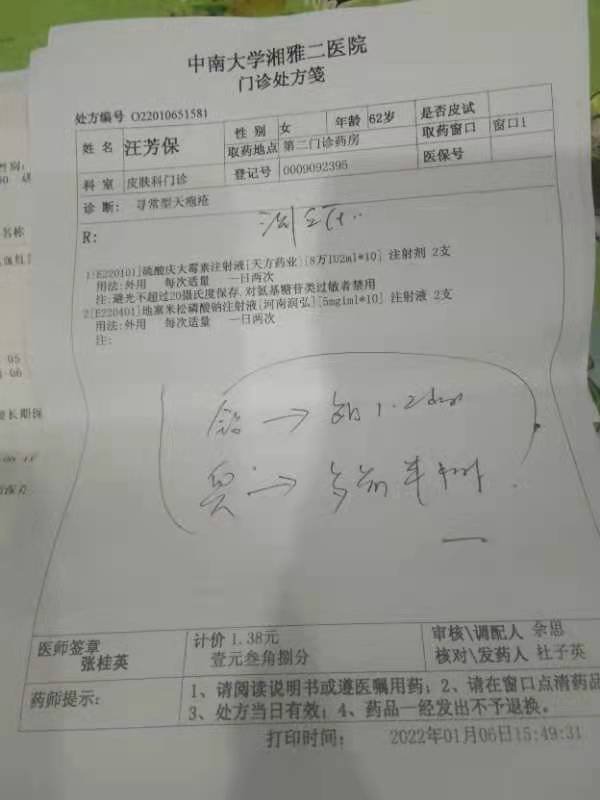 中南大学湘雅二医院
门诊处方笺
处方编号 O22010651581
姓 名 汪芳保 性 别 女 年龄 62岁 是否皮试
取药地点 第二门诊药房 取药窗口 窗口1
科 室 皮肤科门诊 登记号 0009092395 医保号
诊 断: 寻常型天疱疮
R:
1[E220101]硫酸庆大霉素注射液[天方药业][8万IU2ml*10] 注射剂 2支
用法:外用 每次适量 一日两次
注:避光不超过20摄氏度保存,对氨基糖苷类过敏者禁用
2[E220401]地塞米松磷酸钠注射液[河南润弘][5mg1ml*10] 注射液 2支
用法:外用 每次适量 一日两次
注:
医师签章 张桂英
计价 1.38元
壹元叁角捌分
审核\调配人 余思
核对\发药人 杜子英
药师提示: 1、请阅读说明书或遵医嘱用药; 2、请在窗口点清药品
3、处方当日有效; 4、药品一经发出不予退换。
打印时间: 2022年01月06日15:49:31